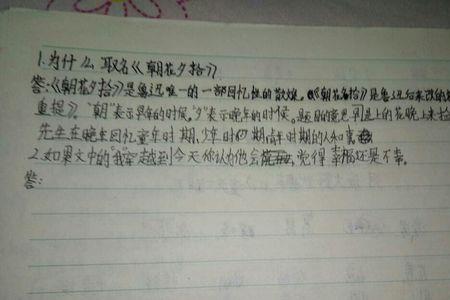 1.为什么取名《朝花夕拾》
答:《朝花夕拾》是鲁迅唯一的一部回忆性的散文。《朝花夕拾》是鲁迅后来改的
重提》。"朝"表示早年的时候。"夕"表示晚年的时候。是的意思早上的花晚上来拾
先生在晚年回忆童年时期,少年时期青年时期的人和事
2.如果文中的"我"穿越到今天你认为他会觉得幸福还是不幸。
答: